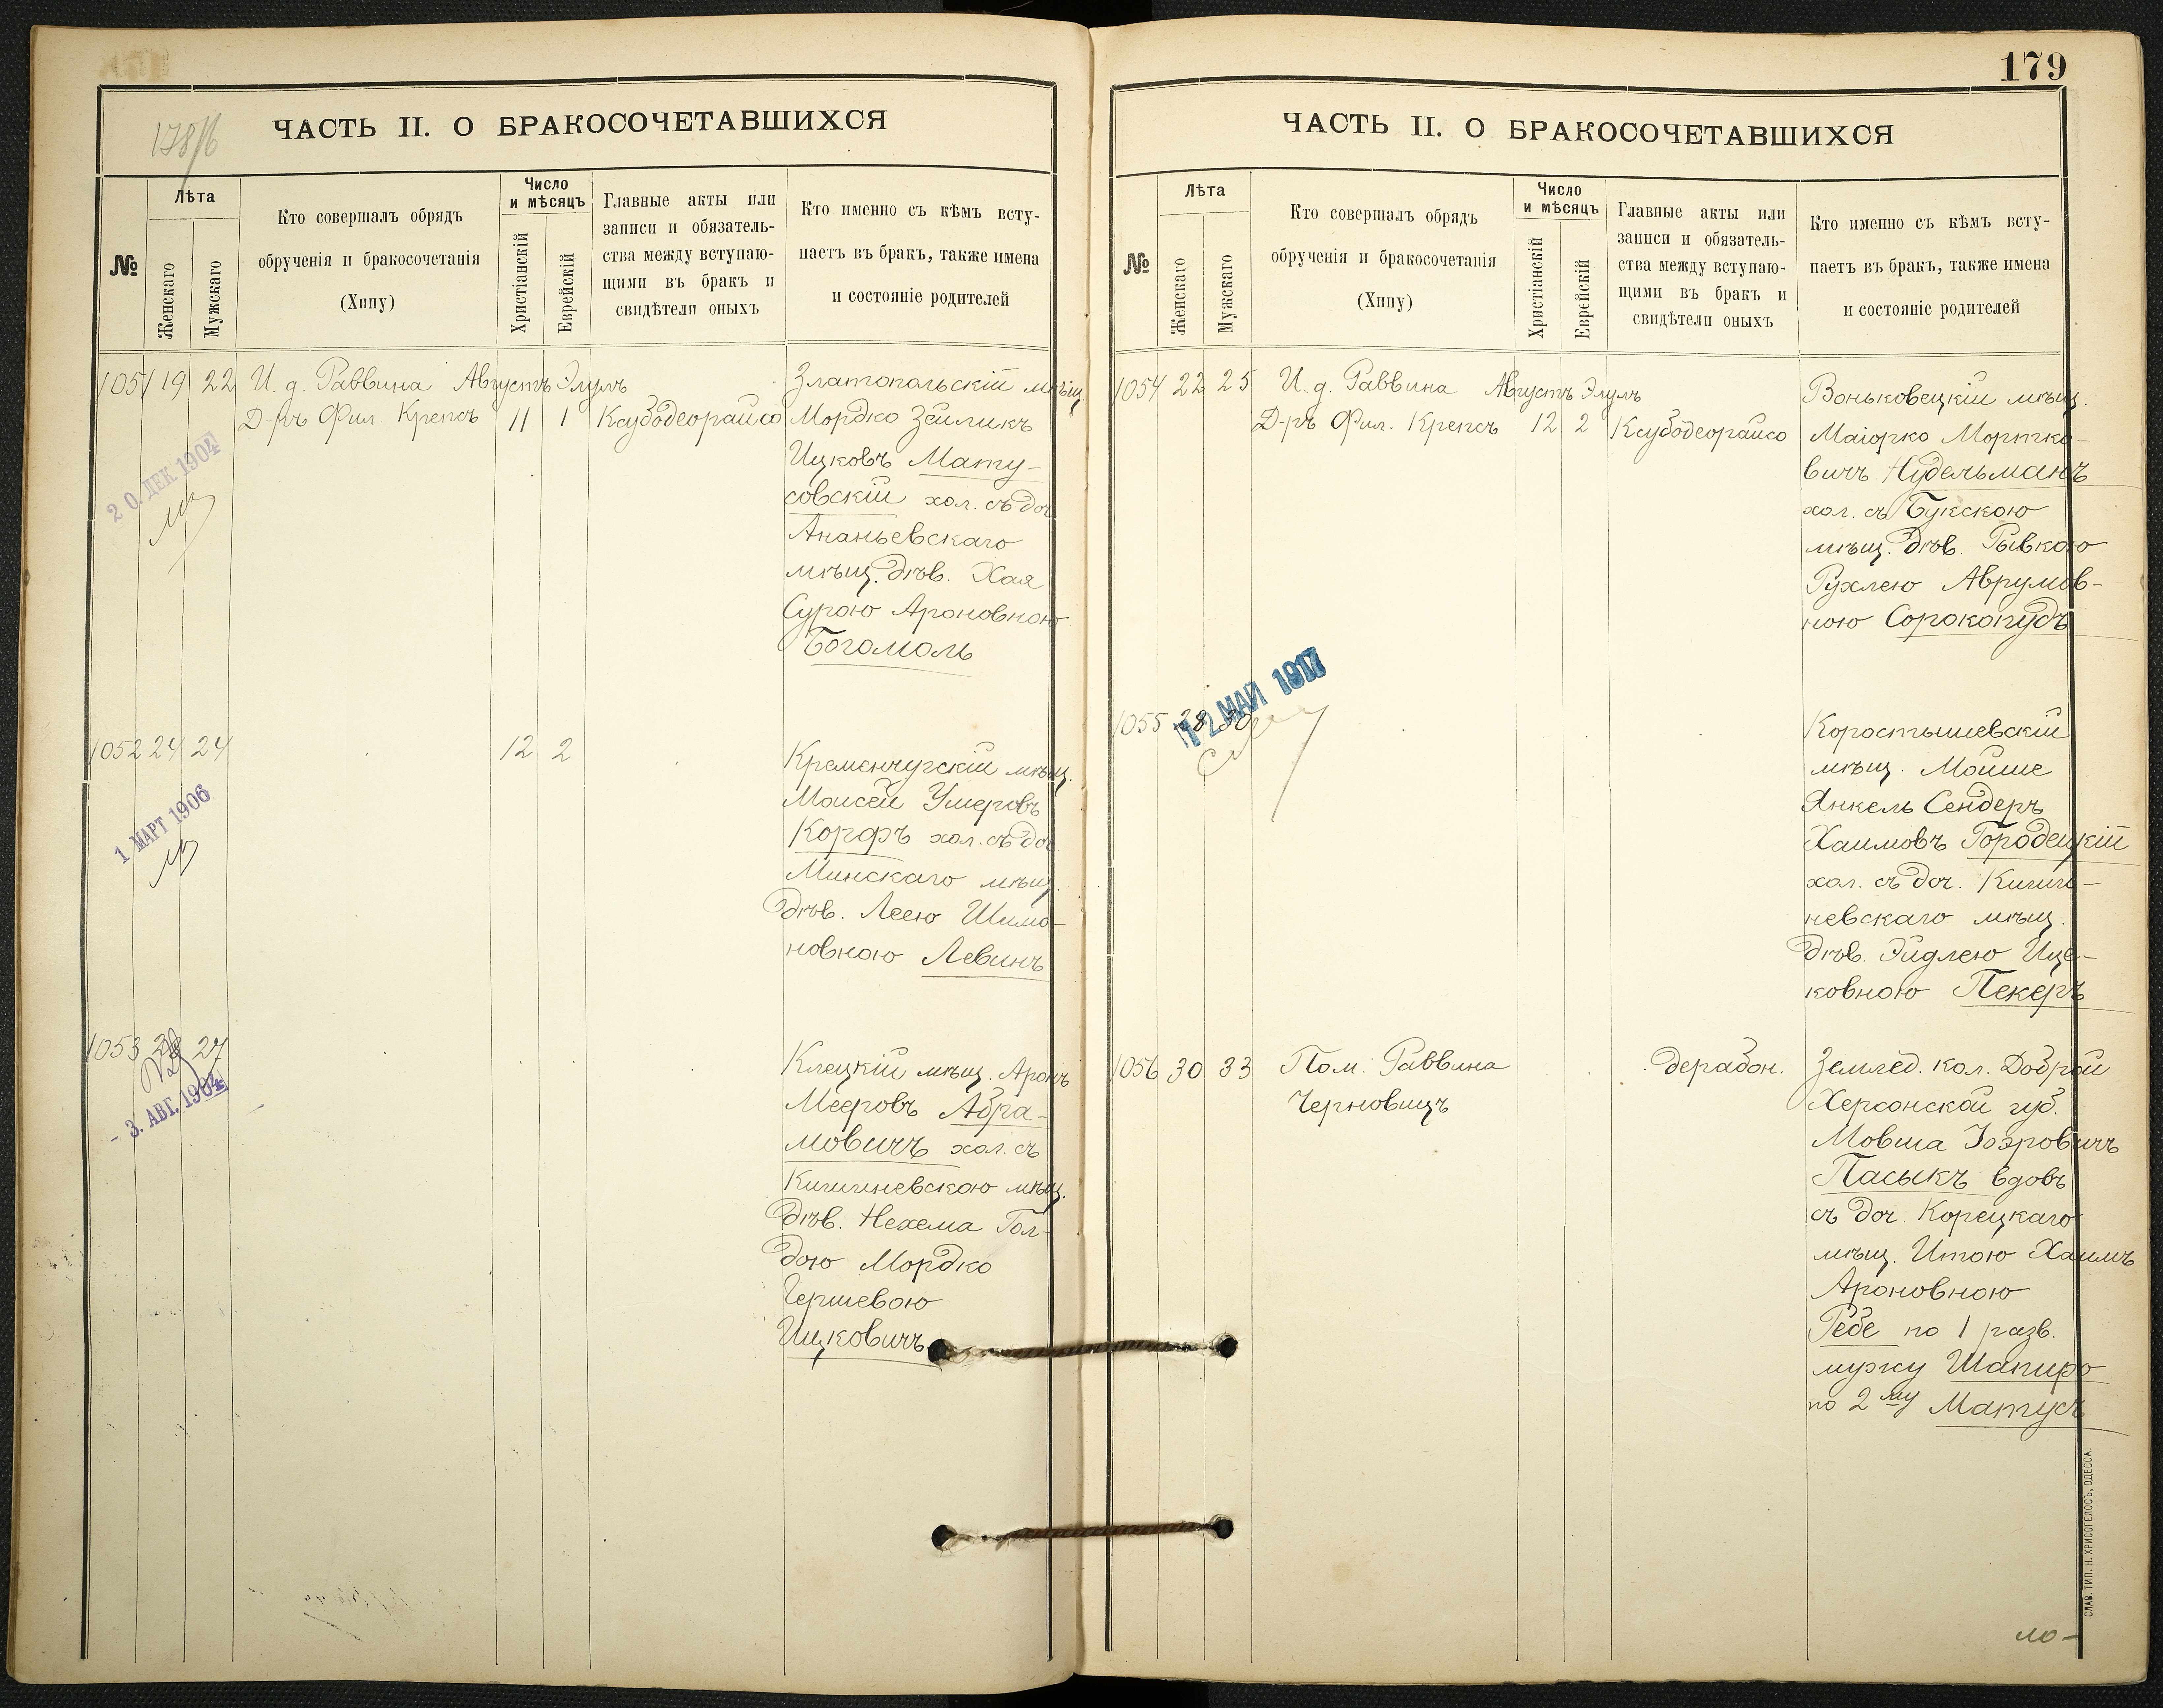 178/б
ЧАСТЬ II. О БРАКОСОЧЕТАВШИХСЯ
№
Лѣта
Женскаго
Мужскаго
Кто совершалъ обрядъ
обрученія и бракосочетанія
(Хипу)
Число
и мѣсяцъ
Христіанскій
Еврейскій
Главные акты или
записи и обязатель-
ства между вступаю-
щими въ бракъ и
свидѣтели оныхъ
Кто именно съ кѣмъ всту-
паетъ въ бракъ, также имена
и состояніе родителей
1051 19 22 И. д. Раввина Августъ Элулъ Златопольскій мѣщ.
Д-ръ Фил. Крепсъ 11 1 Ксубодеорайсо Мордко Зейликъ
Ицковъ Мату-
совскій хол. съ доч.
20. ДЕК 1904
Ананьевскаго
мѣщ. дѣв. Хая
Сурою Ароновною
Богомоль
1052 24 24 12 2 Кременчугскій мѣщ.
Моисей Умеровъ
1 МАРТ 1906
Корфъ хол. съ доч.
Минскаго мѣщ.
дѣв. Леею Шимо-
новною Левинъ
1053 27
Клецкій мѣщ. Аронъ
- 3. АВГ. 1904
Мееровъ Абра-
мовичъ хол. съ
Кишиневскою мѣщ.
дѣв. Нехема Гол-
дою Мордко
Гершевою
Ицковичъ
179
ЧАСТЬ II. О БРАКОСОЧЕТАВШИХСЯ
№
Лѣта
Женскаго
Мужскаго
Кто совершалъ обрядъ
обрученія и бракосочетанія
(Хипу)
Число
и мѣсяцъ
Христіанскій
Еврейскій
Главные акты или
записи и обязатель-
ства между вступаю-
щими въ бракъ и
свидѣтели оныхъ
Кто именно съ кѣмъ всту-
паетъ въ бракъ, также имена
и состояніе родителей
1054 22 25 И. д. Раввина Августъ Элулъ Воньковецкій мѣщ.
Д-ръ Фил. Крепсъ 12 2 Ксубодеорайсо Маіорко Мортко-
вичъ Нудельманъ
хол. съ Букскою
мѣщ. дѣв. Рывкою
Рухлею Аврумов-
ною Сорокопудъ
12 МАЙ 1917
1055 28 30 Коростышевскій
мѣщ. Мойше
Янкель Сендеръ
Хаимовъ Городецкій
хол. съ доч. Кише-
невскаго мѣщ.
дѣв. Эйдлею Ице-
ковною Пекеръ
1056 30 33 Пом. Раввина дерабон. Землед. кол. Доброй
Черновицъ Херсонской губ.
Мовша Іоэровичъ
Пасыкъ вдовъ
съ доч. Корецкаго
мѣщ. Итою Хаимъ
Ароновною
Ребе по 1 разв.
мужу Шапиро
по 2му Матусъ
СЛАВ. ТИП. Н. ХРИСОГЕЛОСЪ, ОДЕССА.